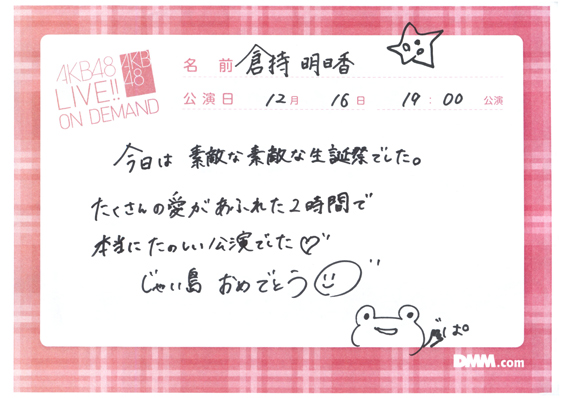 AKB48
LIVE!!
ON DEMAND
AKB
48
名 前 倉持 明日香
公演日 12月 16日 19:00 公演
今日は 素敵な素敵な生誕祭でした。
たくさんの愛があふれた2時間で
本当にたのしい公演でした♡
じゃい島 おめでとう
DMM.com